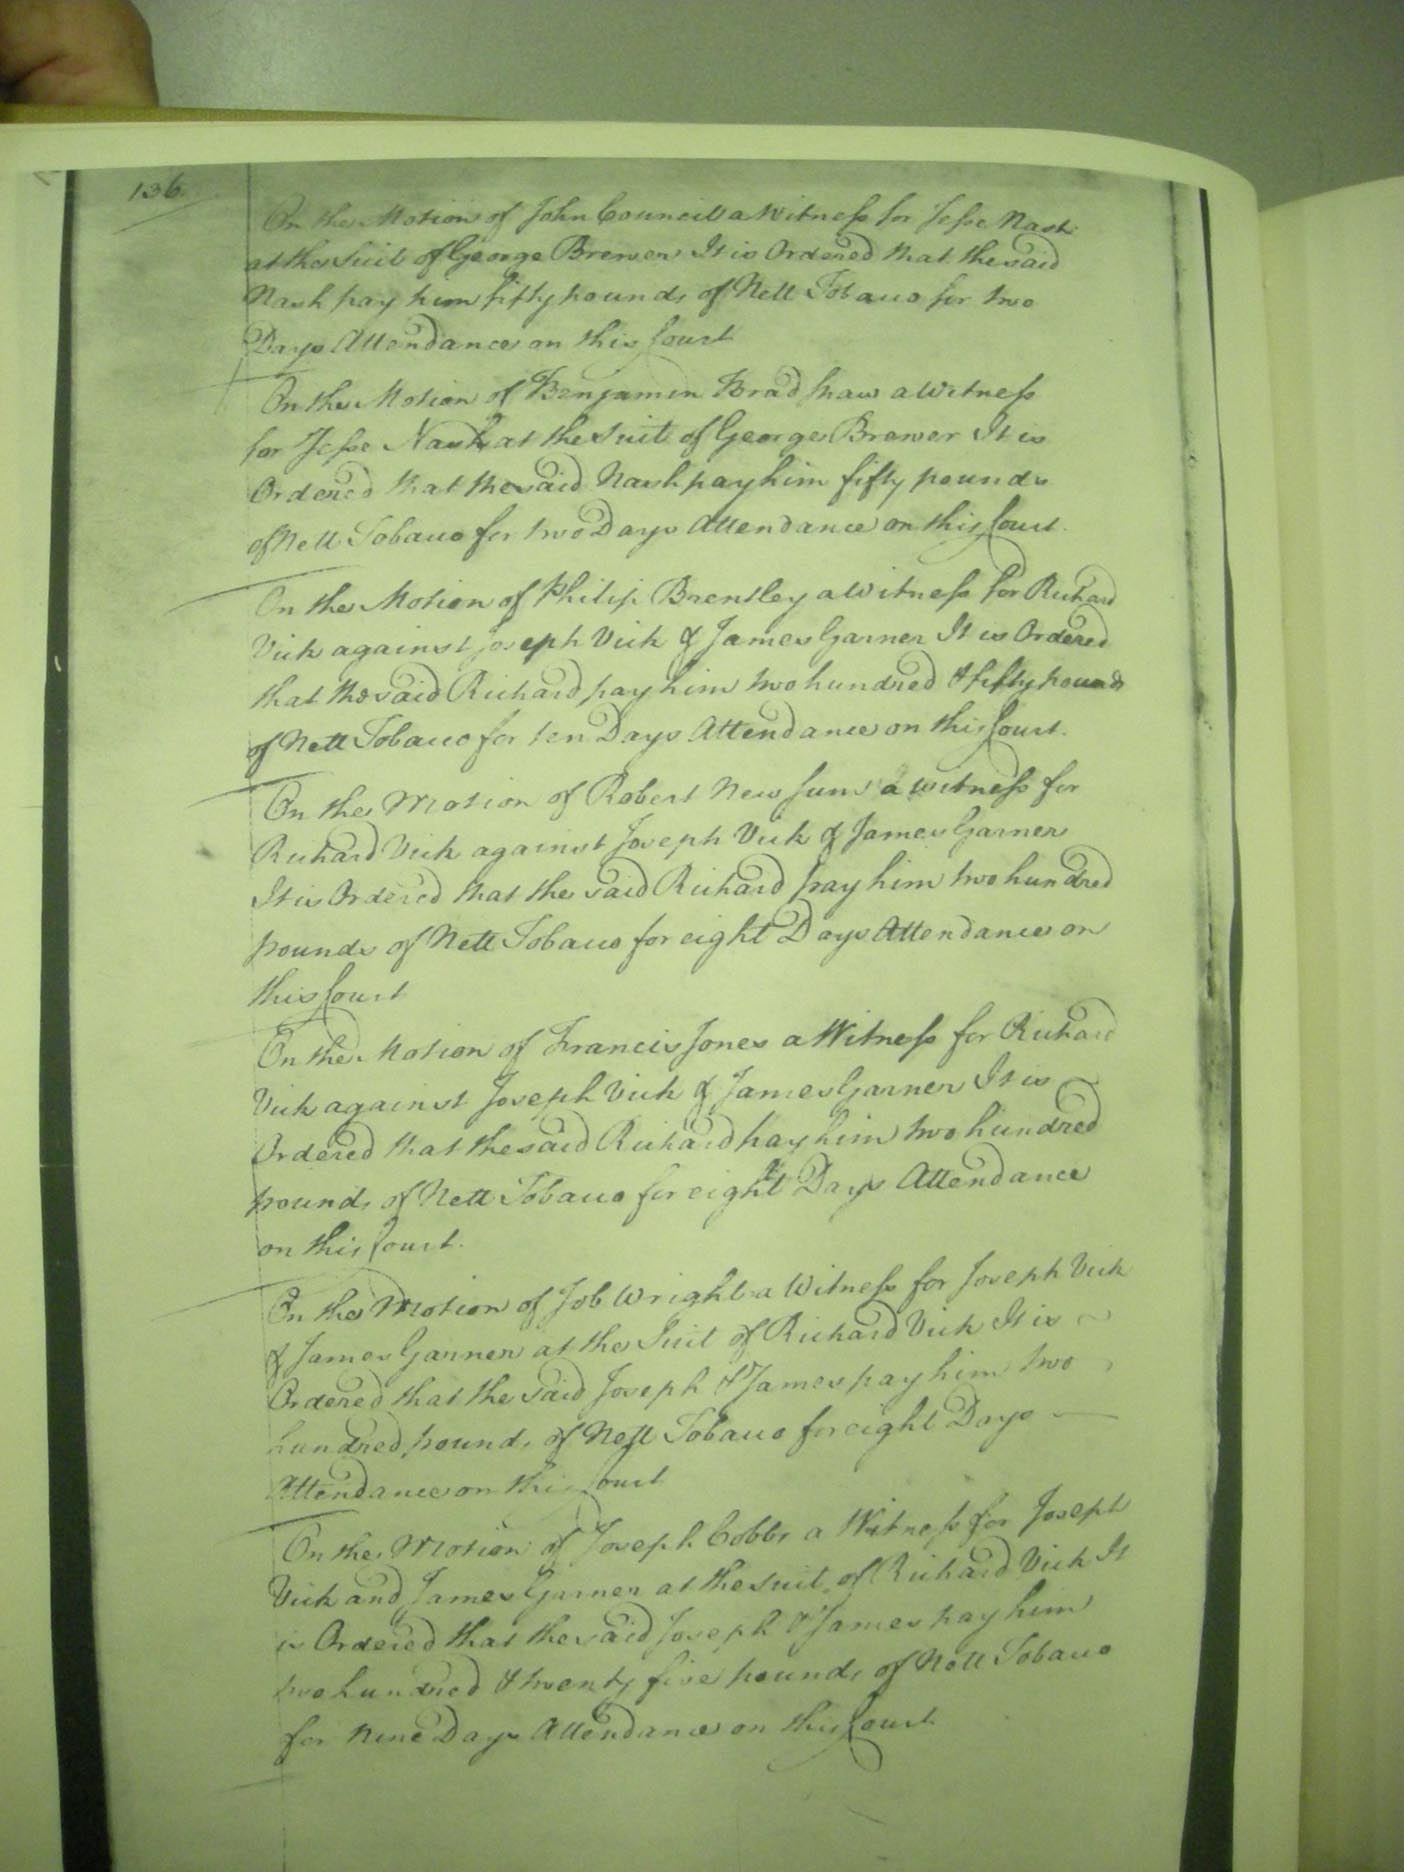 136
On the Motion of John Council a Witness for Jesse Nash
at the Suit of George Brewer It is Ordered that the said
Nash pay him fifty pounds of Nett Tobacco for two
Days Attendance on this Court
On the Motion of Benjamin Bradshaw a Witness
for Jesse Nash at the Suit of George Brewer It is
Ordered that the said Nash pay him fifty pounds
of Nett Tobacco for two Days Attendance on this Court.
On the Motion of Philip Brentley a Witness for Richard
Vick against Joseph Vick & James Garner It is Ordered
that the said Richard pay him two hundred & fifty pounds
of Nett Tobacco for ten Days Attendance on this Court.
On the Motion of Robert Newsum a Witness for
Richard Vick against Joseph Vick & James Garner
It is Ordered that the said Richard pay him two hundred
pounds of Nett Tobacco for eight Days Attendance on
this Court
On the Motion of Francis Jones a Witness for Richard
Vick against Joseph Vick & James Garner It is
Ordered that the said Richard pay him two hundred
pounds of Nett Tobacco for eight Days Attendance
on this Court.
On the Motion of Job Wright a Witness for Joseph Vick
& James Garner at the Suit of Richard Vick It is
Ordered that the said Joseph & James pay him two
hundred pounds of Nett Tobacco for eight Days
Attendance on this Court
On the Motion of Joseph Cobbs a Witness for Joseph
Vick and James Garner at the Suit of Richard Vick It
is Ordered that the said Joseph & James pay him
two hundred & twenty five pounds of Nett Tobacco
for nine Days Attendance on this Court